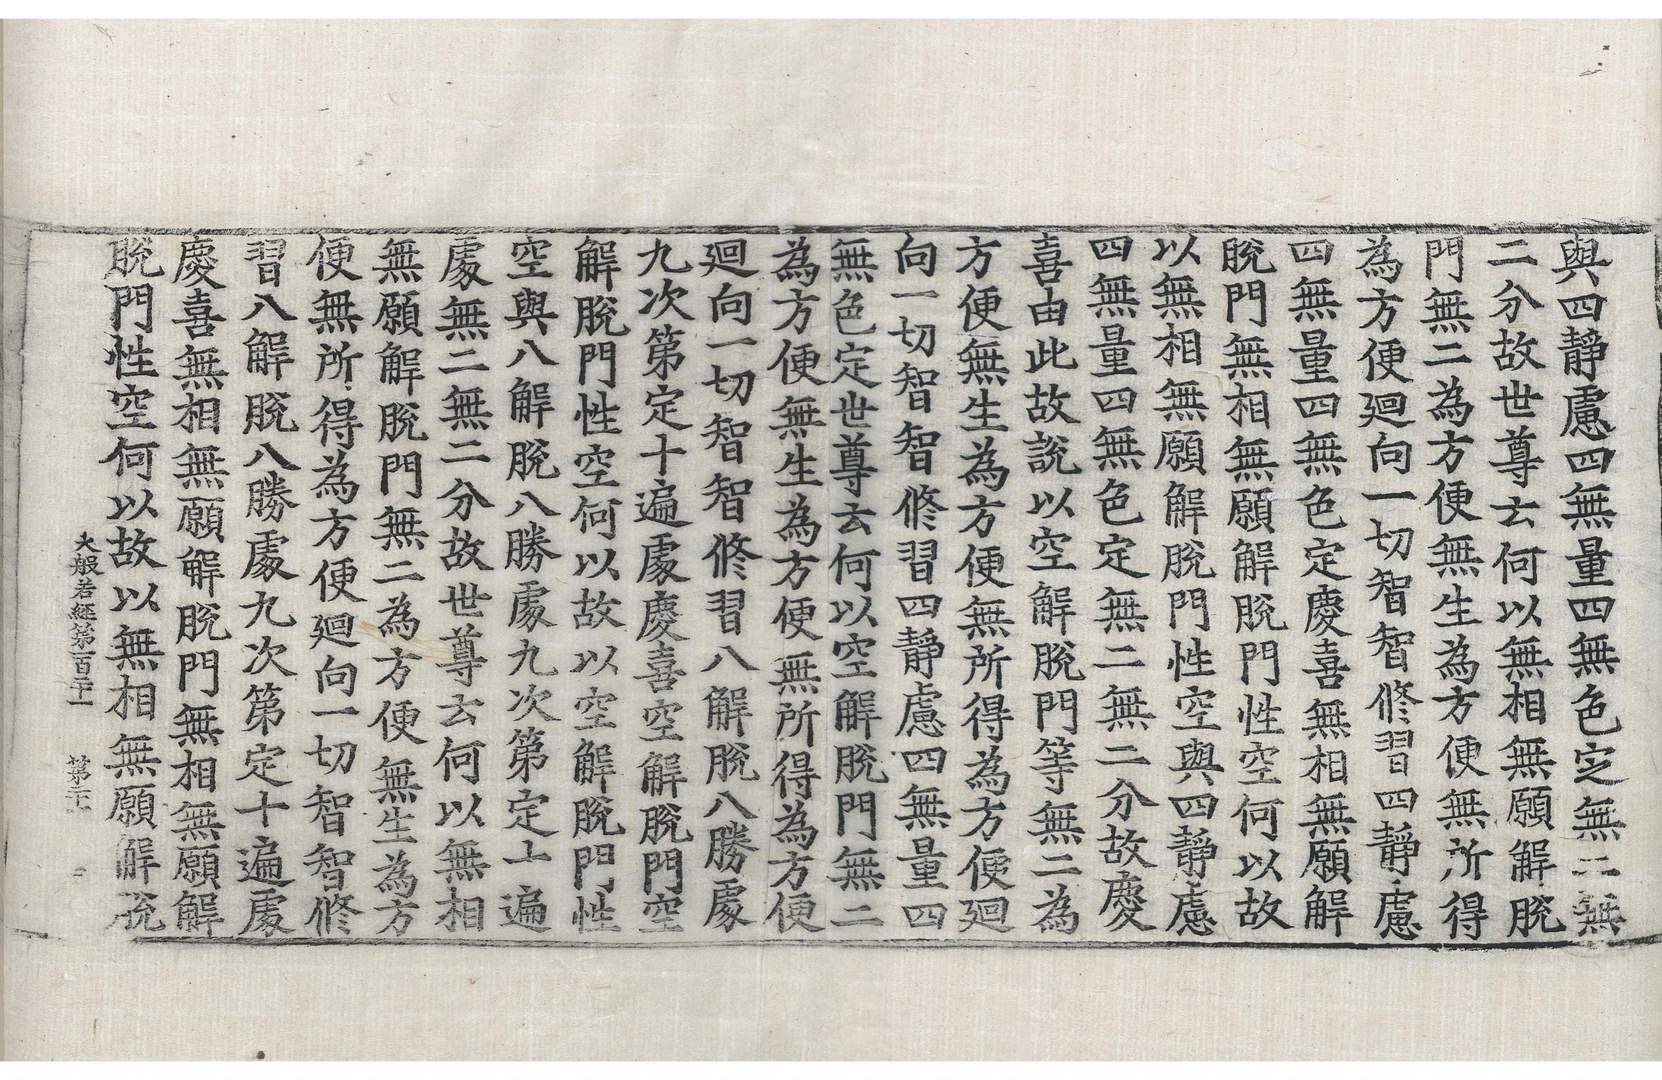 與四靜慮四無量四無色定無二無
二分故世尊云何以無相無願解脫
門無二為方便無生為方便無所得
為方便廻向一切智智修習四靜慮
四無量四無色定慶喜無相無願解
脫門無相無願解脫門性空何以故
以無相無願解脫門性空與四靜慮
四無量四無色定無二無二分故慶
喜由此故說以空解脫門等無二為
方便無生為方便無所得為方便廻
向一切智智修習四靜慮四無量四
無色定世尊云何以空解脫門無二
為方便無生為方便無所得為方便
廻向一切智智修習八解脫八勝處
九次第定十遍處慶喜空解脫門空
解脫門性空何以故以空解脫門性
空與八解脫八勝處九次第定十遍
處無二無二分故世尊云何以無相
無願解脫門無二為方便無生為方
便無所得為方便廻向一切智智修
習八解脫八勝處九次第定十遍處
慶喜無相無願解脫門無相無願解
脫門性空何以故以無相無願解脫
大般若經第一百二十一 第二十